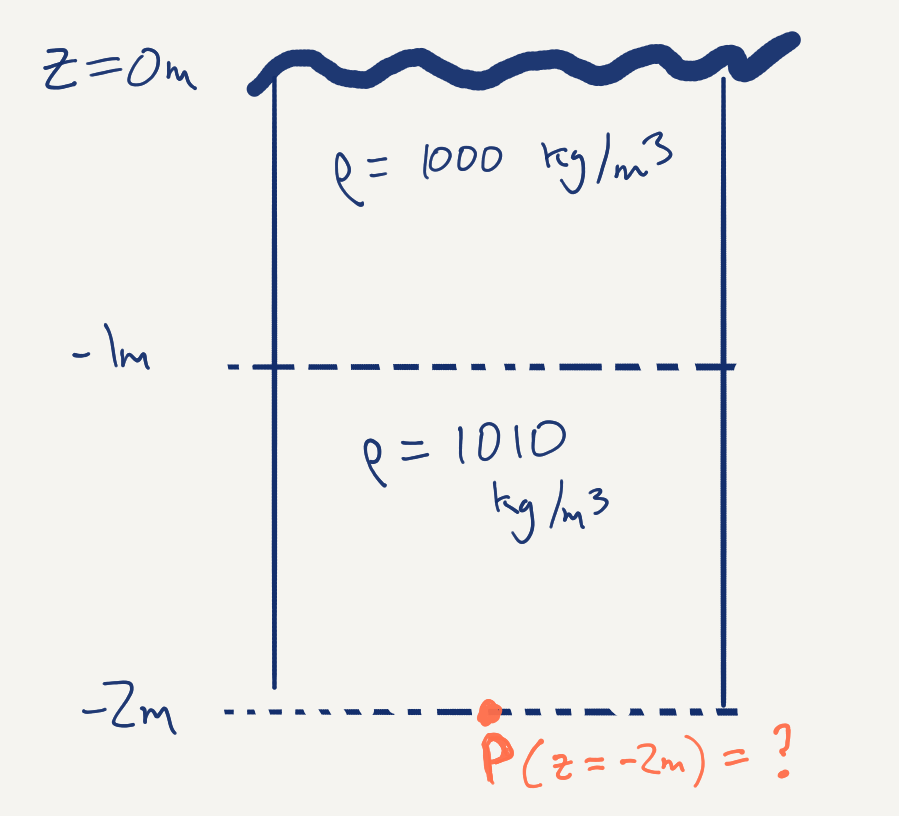 z=0m
ρ= 1000 kg/m³
-1m
ρ= 1010
kg/m³
-2m
P(z=-2m) = ?